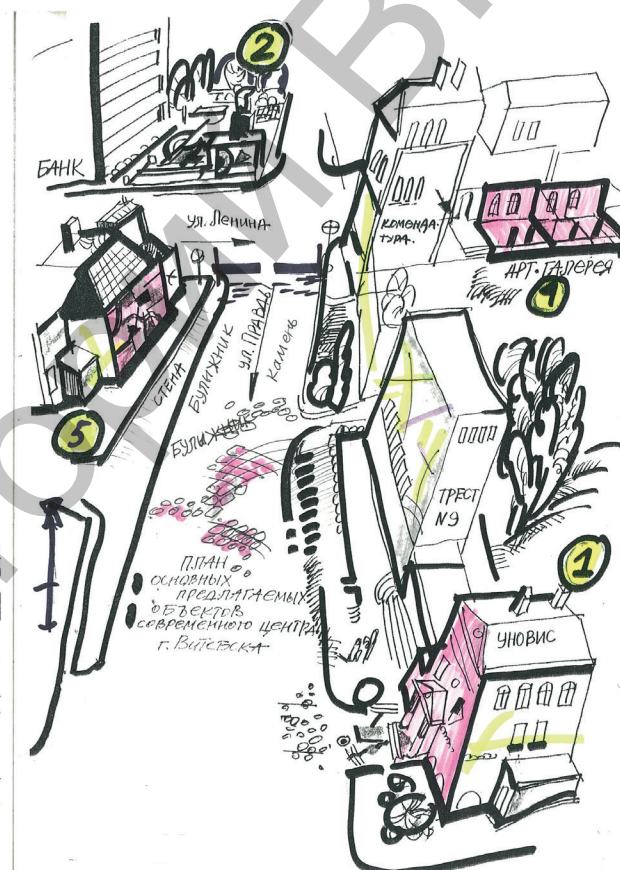 2
БАНК
ул. Ленина
КОМЕНДА-
ТУРА.
АРТ-ГАЛЕРЕЯ
1
5
СТЕНА
БУЛИЖНИК
УЛ. ПРАВДЫ
Камень
БУЛЫЖНИК
ТРЕСТ
N9
1
ПЛАН
ОСНОВНЫХ
ПРЕДЛАГАЕМЫХ
ОБЪЕКТОВ
СОВРЕМЕННОГО ЦЕНТРА
г. ВИТЕБСКА
УНОВИС